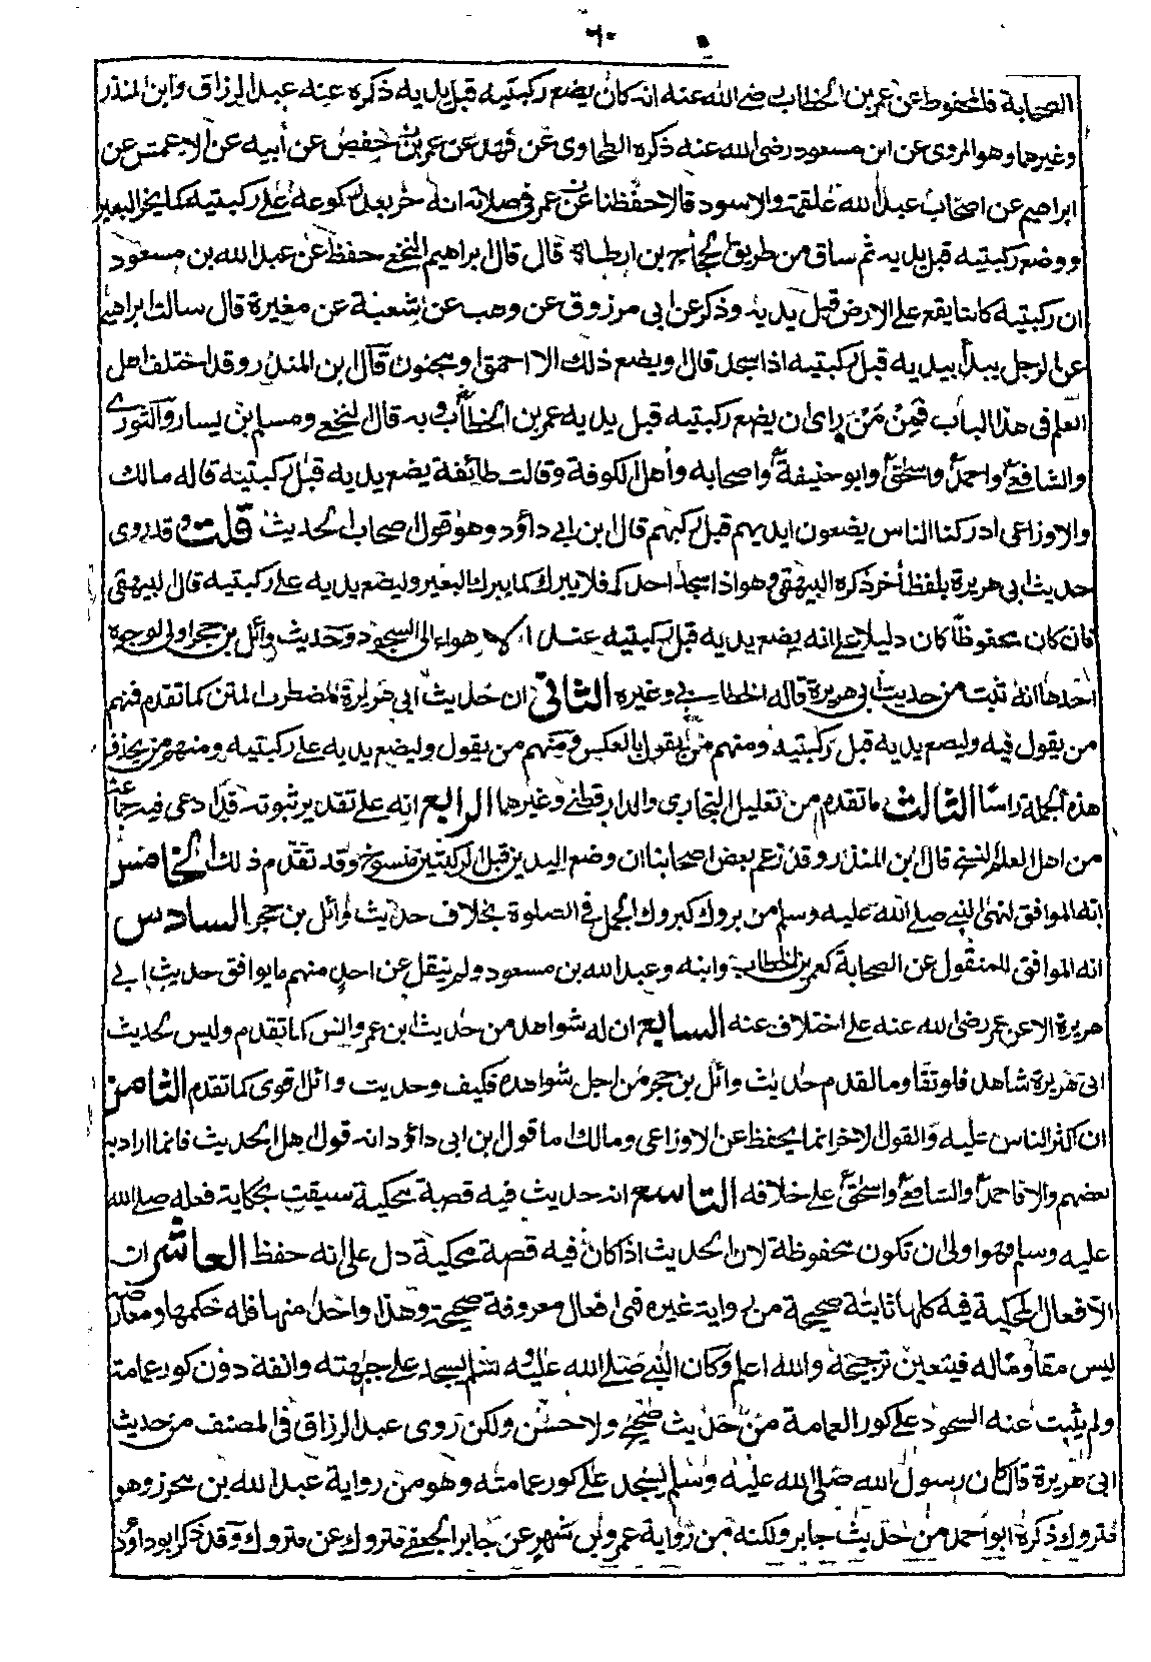 ٦٠
الصحابة فالمحفوظ عن عمر بن الخطاب رضي الله عنه انه كان يضع ركبتيه قبل يديه ذكره عنه عبد الرزاق وابن المنذر
وغيرهما وهو المروى عن ابن مسعود رضى الله عنه ذكره الطحاوى عن فهد عن عمر بن حفص عن أبيه عن الاعمش عن
ابراهيم عن اصحاب عبد الله علقمة والاسود قالا حفظنا عن عمر فى صلاته انه خر بعد ركوعه على ركبتيه كما يخر البعير
ووضع ركبتيه قبل يديه ثم ساق من طريق الحجاج بن ارطاة قال قال ابراهيم النخعى حفظ عن عبد الله بن مسعود
ان ركبتيه كانتا يقع على الارض قبل يديه وذكر عن ابى مرزوق عن وهب عن شعبة عن مغيرة قال سالت ابراهيم
عن الرجل يبدأ بيديه قبل ركبتيه اذا سجد قال او يضع ذلك الا احمق او مجنون قال ابن المنذر وقد اختلف اهل
العلم فى هذا الباب فمن من راى ان يضع ركبتيه قبل يديه عمر بن الخطاب وبه قال النخعى ومسلم بن يسار والثورى
والشافعى واحمد واسحق وابو حنيفة واصحابه وأهل الكوفة وقالت طائفة يضع يديه قبل ركبتيه قاله مالك
والاوزاعى ادركنا الناس يضعون ايديهم قبل ركبهم قال ابن ابى داؤد وهو قول اصحاب الحديث قلت وقد روى
حديث ابى هريرة بلفظ أخر ذكره البيهقى وهو اذا سجد احدكم فلا يبرك كما يبرك البعير وليضع يديه على ركبتيه قال البيهقى
فان كان محفوظا كان دليلا على انه يضع يديه قبل ركبتيه عند الاهواء الى السجود وحديث وائل بن حجر اولى لوجوه
احدها انه ثبت من حديث ابى هريرة قاله الخطابى وغيره الثانى ان حديث ابى هريرة مضطرب المتن كما تقدم فمنهم
من يقول فيه وليضع يديه قبل ركبتيه ومنهم من يقول بالعكس ومنهم من يقول وليضع يديه على ركبتيه ومنهم من يحذف
هذه الجملة راسا الثالث ما تقدم من تعليل البخارى والدارقطنى وغيرهما الرابع انه على تقدير ثبوته قد ادعى فيه جماعة
من اهل العلم النسخ قال ابن المنذر وقد زعم بعض اصحابنا ان وضع اليدين قبل الركبتين منسوخ وقد تقدم ذلك الخامس
انه الموافق لنهى النبى صلى الله عليه وسلم من بروك كبروك الجمل فى الصلوة بخلاف حديث وائل بن حجر السادس
انه الموافق للمنقول عن الصحابة كعمر بن الخطاب وابنه وعبد الله بن مسعود ولم ينقل عن احد منهم ما يوافق حديث ابى
هريرة الا عن عمر رضى الله عنه على اختلاف عنه السابع ان له شواهد من حديث ابن عمر وانس كما تقدم وليس لحديث
ابى هريرة شاهد فلو تقاوما لقدم حديث وائل بن حجر من اجل شواهده فكيف وحديث وائل اقوى كما تقدم الثامن
ان اكثر الناس عليه والقول الاخر انما يحفظ عن الاوزاعى ومالك اما قول ابن ابى داؤد انه قول اهل الحديث فانما اراد به
بعضهم والا فاحمد والشافعى واسحق على خلافه التاسع انه حديث فيه قصة محكية سيقت بحكاية فعله صلى الله
عليه وسلم فهو اولى ان تكون محفوظة لان الحديث اذا كان فيه قصة محكية دل على انه حفظ العاشر ان
الافعال المحكية فيه كلها ثابتة صحيحة من رواية غيره فهى افعال معروفة صحيحة وهذا واحد منها فله حكمها ومعارضه
ليس مقاوما له فيتعين ترجيحه والله اعلم وكان النبى صلى الله عليه وسلم يسجد على جبهته وانفه دون كور عمامته
ولم يثبت عنه السجود على كور العمامة من حديث صحيح ولا حسن ولكن روى عبد الرزاق فى المصنف من حديث
ابى هريرة قال كان رسول الله صلى الله عليه وسلم يسجد على كور عمامته وهو من رواية عبد الله بن محرز وهو
متروك ذكره ابو احمد من حديث جابر ولكنه من رواية عمرو بن شهر عن جابر الجعفى متروك عن متروك وقد ذكر ابو داؤد